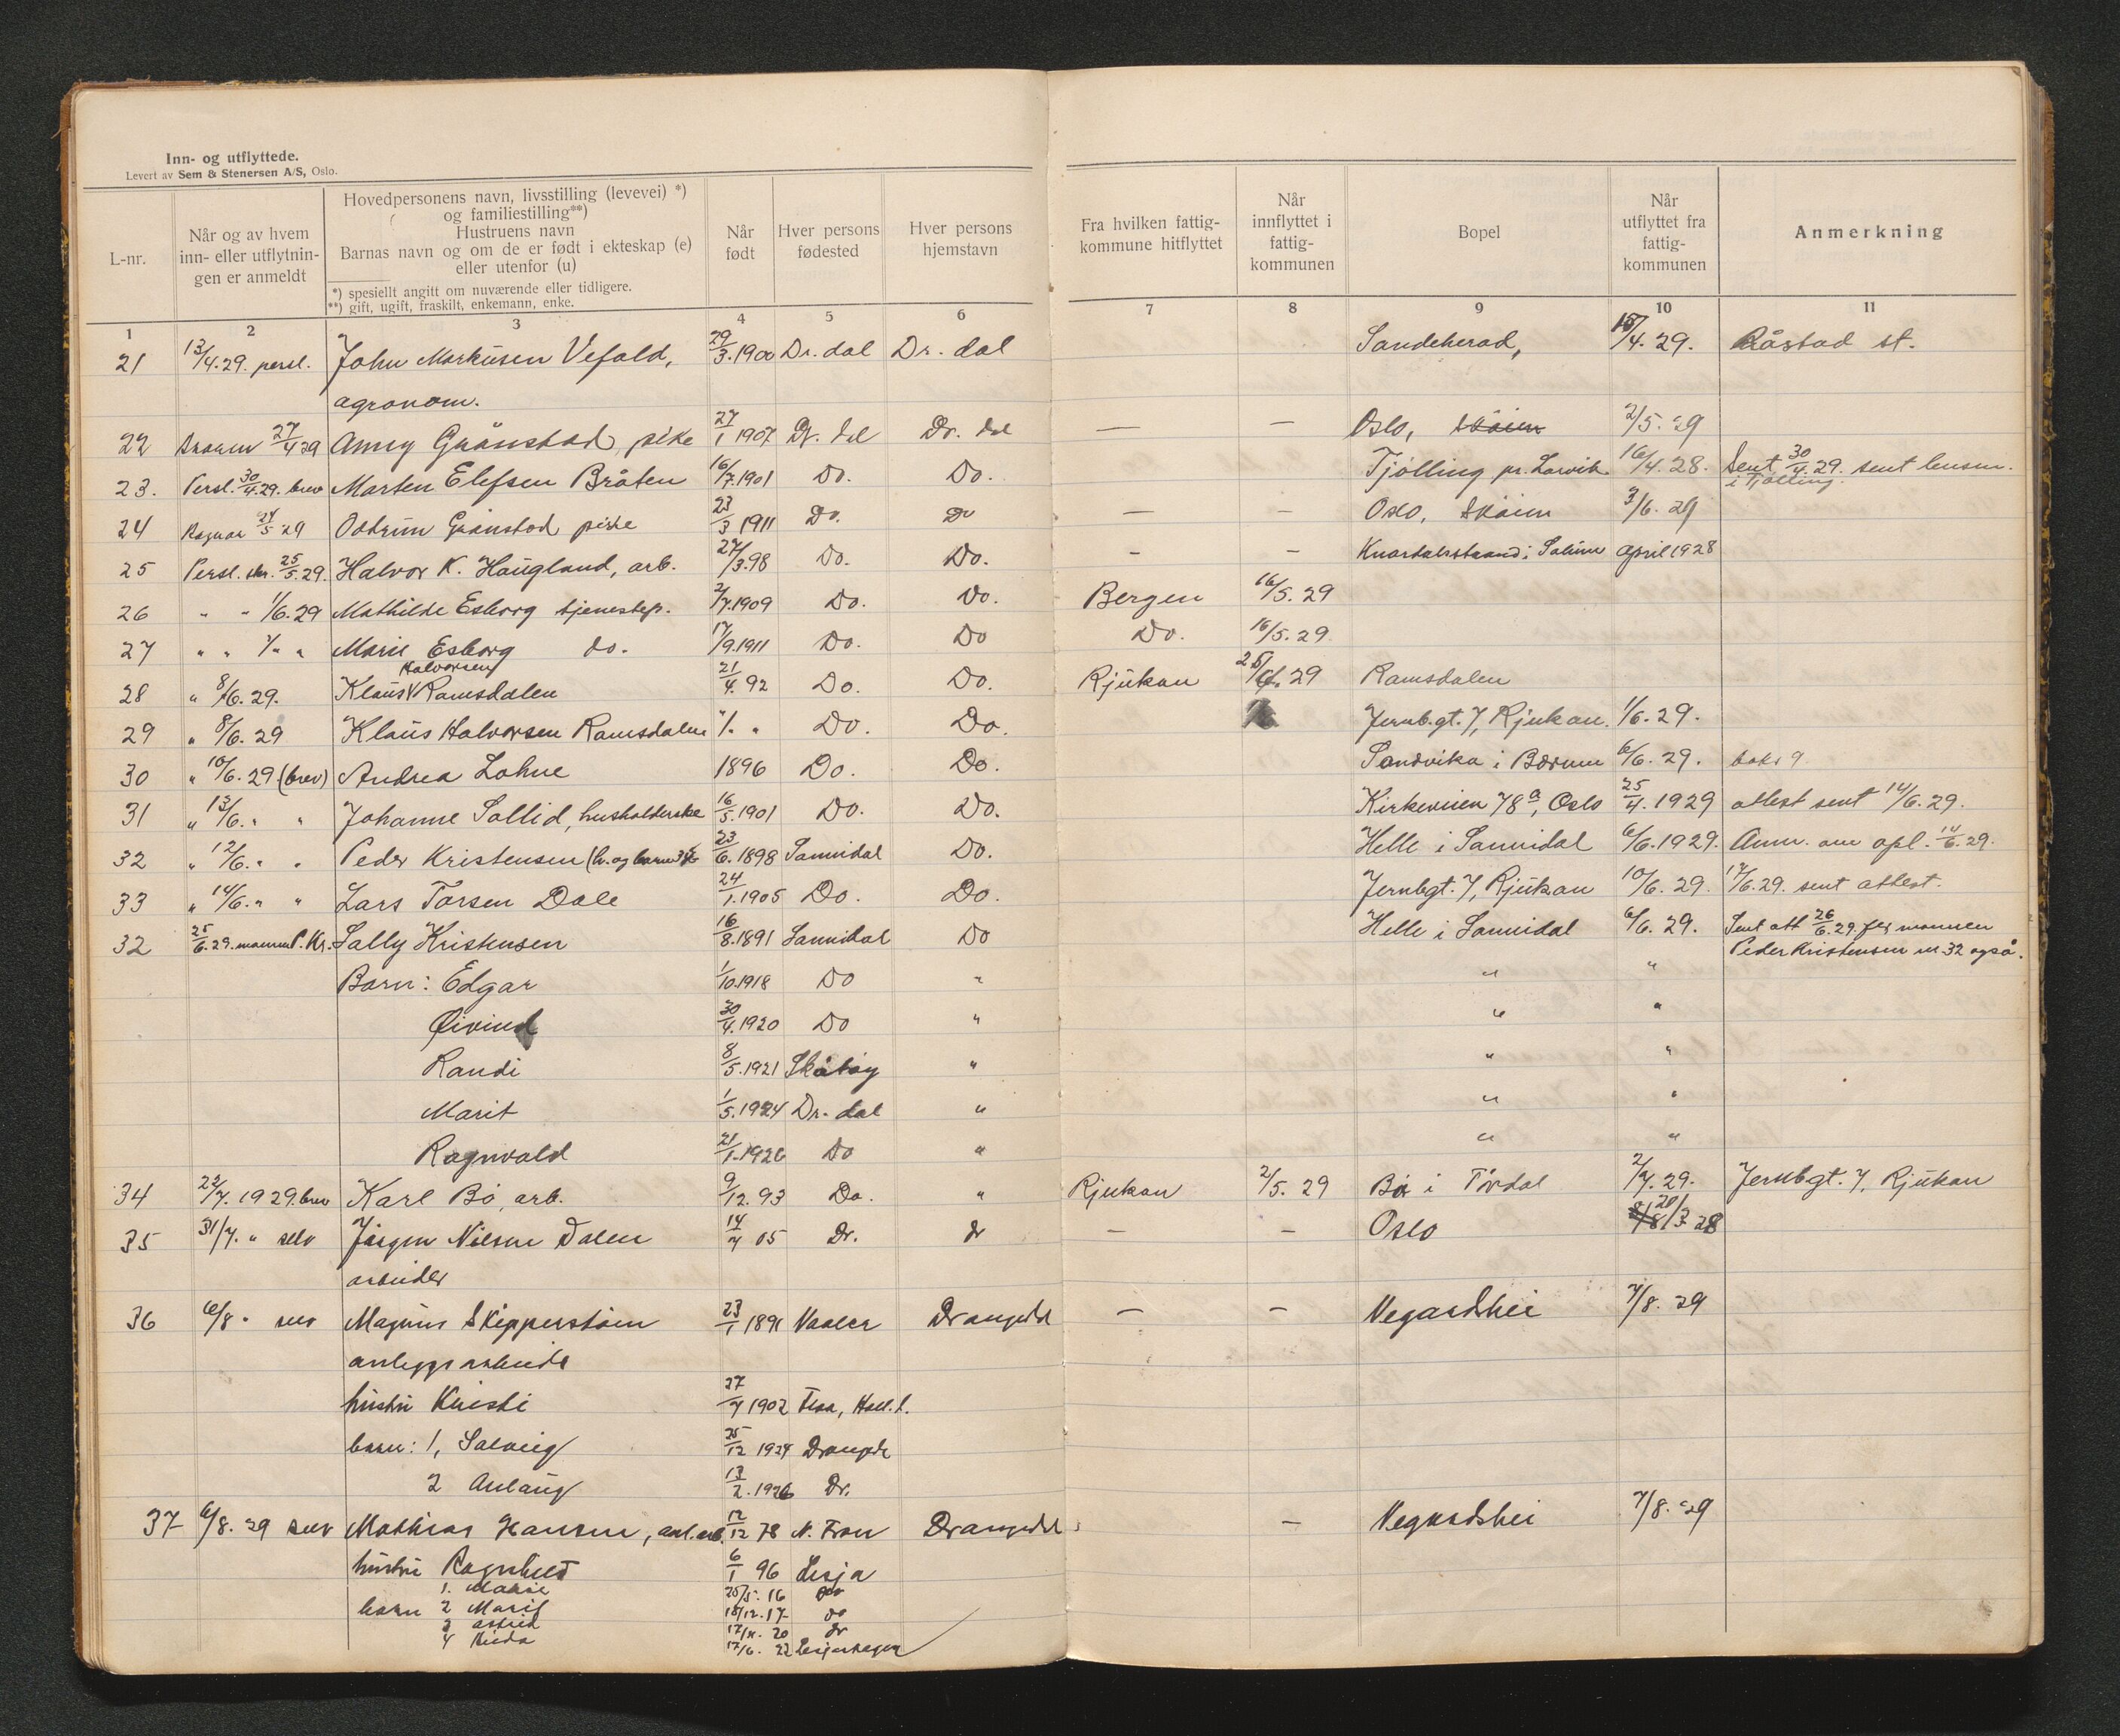 Inn- og utflyttede.
Levert av Sem & Stenersen A/S, Oslo.
L-nr.
Når og av hvem
inn- eller utflytnin-
gen er anmeldt
Hovedpersonens navn, livsstilling (levevei) *)
og familiestilling**)
Hustruens navn
Barnas navn og om de er født i ekteskap (e)
eller utenfor (u)
*) spesiellt angitt om nuværende eller tidligere.
**) gift, ugift, fraskilt, enkemann, enke.
Når
født
Hver persons
fødested
Hver persons
hjemstavn
Fra hvilken fattig-
kommune hitflyttet
Når
innflyttet i
fattig-
kommunen
Bopel
Når
utflyttet fra
fattig-
kommunen
Anmerkning
1 2 3 4 5 6 7 8 9 10 11
21 13/4.29. persl. John Markusen Vefald, 29/3.1900 Dr. dal Dr. dal Sandeherad, /4.29. Råstad st.
agronom.
22 27/4 29 Anny Grånstad, pike 27/1 1907 Dr. dal Dr. dal — — Oslo, Skåien 2/5. 29
23. Persl. 30/4.29. brev Marten Elefsen Bråten 16/7.1901 Do. Do. Tjølling pr. Larvik 16/4.28. Sent 30/4.29. sent lensm.
i Tjølling.
24 Ragnar 24/5 29 Grånstad pike 23/3 1911 Do. Do — - Oslo, Skåien 3/6. 29
25 Persl. skr. 25/5.29. Halvor K. Haugland, arb. 27/3.98 Do. Do. - - i april 1928
26 " " 1/6.29 Mathilde Esborg tjenestep. 2/7.1909 Do. Do. Bergen 16/5.29
27 " " 1/" " Marie Esborg do. 17/9.1911 Do. Do Do. 16/5.29
28 " 8/6.29. Klaus Halvorsen Ramsdalen 21/4.92 Do. Do. Rjukan 29 Ramsdalen
29 " 8/6.29 Klaus Halvorsen Ramsdalen "/" " Do. Do. Jernb.gt. 7, Rjukan. 1/6.29.
30 " 10/6.29 (brev) Andrea Lohne 1896 Do. Do. Sandvika i Bærum 6/6.29.
31 " 13/6. " " Johanne Sollid, husholderske 16/5.1901 Do. Do. Kirkeveien 78a, Oslo 25/4.1929 attest sent 14/6.29.
32 " 12/6. " " Peder Kristensen 23/6.1898 Sannidal Do. Helle i Sannidal 6/6.1929. Anm. om opl. 14/6.29.
33 " 14/6. " " Lars Torsen Dale 24/1.1905 Do. Do. Jernbgt. 7, Rjukan 10/6.29. 17/6.29. sent attest.
32 25/6.29. mannen P. Kr. Sally Kristensen 16/8.1891 Sannidal Do Helle i Sannidal 6/6.29. Sent att 26/6.29. for mannen
Peder Kristensen nr. 32 også.
Barn: Edgar 1/10.1918 Do " " "
Øivind 30/4.1920 Do " " "
Randi 8/5.1921 Skåtøy " " "
Marit 1/5.1924 Dr. dal " " "
Ragnvald 21/1.1926 Do " " "
34 22/7.1929 brev Karl Bø, arb. 9/12.93 Do. " Rjukan 2/5. 29 Bø i Tørdal 2/7.29. Jernbgt. 7, Rjukan
35 31/7. " selv Jørgen Nilsen Dalen 14/7 05 Dr. dr — – Oslo 20/3 28
arbeider
36 6/8 " selv Magnus Skipperstøen 23/1 1891 Vaaler Drangedal – – Vegardshei 7/8. 29
anleggsarbeider
hustru Kristi 27/7 1902 Flaa, Hall.d.
barn: 1, Solveig 25/12 1924 Drangedal
2 Aslaug 13/2.1926 Dr.
37 6/8. 29 selv Mathias Hansen, anl.arb. 12/12 78 N. Fron Drangedal – Vegardshei 7/8. 29
hustru Ragnhild 6/1 96 Lesja
1. 25/5. 16 do
barn 2 Marit 18/12.17 do
3 Astrid 20 dr
4 17/6. 22